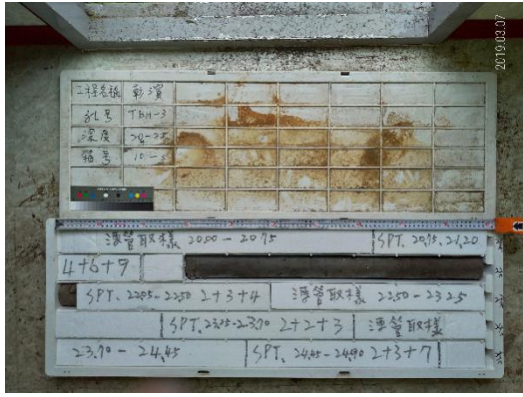 2019.03.07
工程名稱 彰濱
孔号
深度
箱号 10-5
薄管取樣 20.00-20.75 SPT. 20.75-21.20
4+6+7
SPT. 22.05-22.50 2+3+4 薄管取樣 22.50-23.25
SPT. 23.25-23.70 2+2+3 薄管取樣
23.70-24.45 SPT. 24.45-24.90 2+3+7